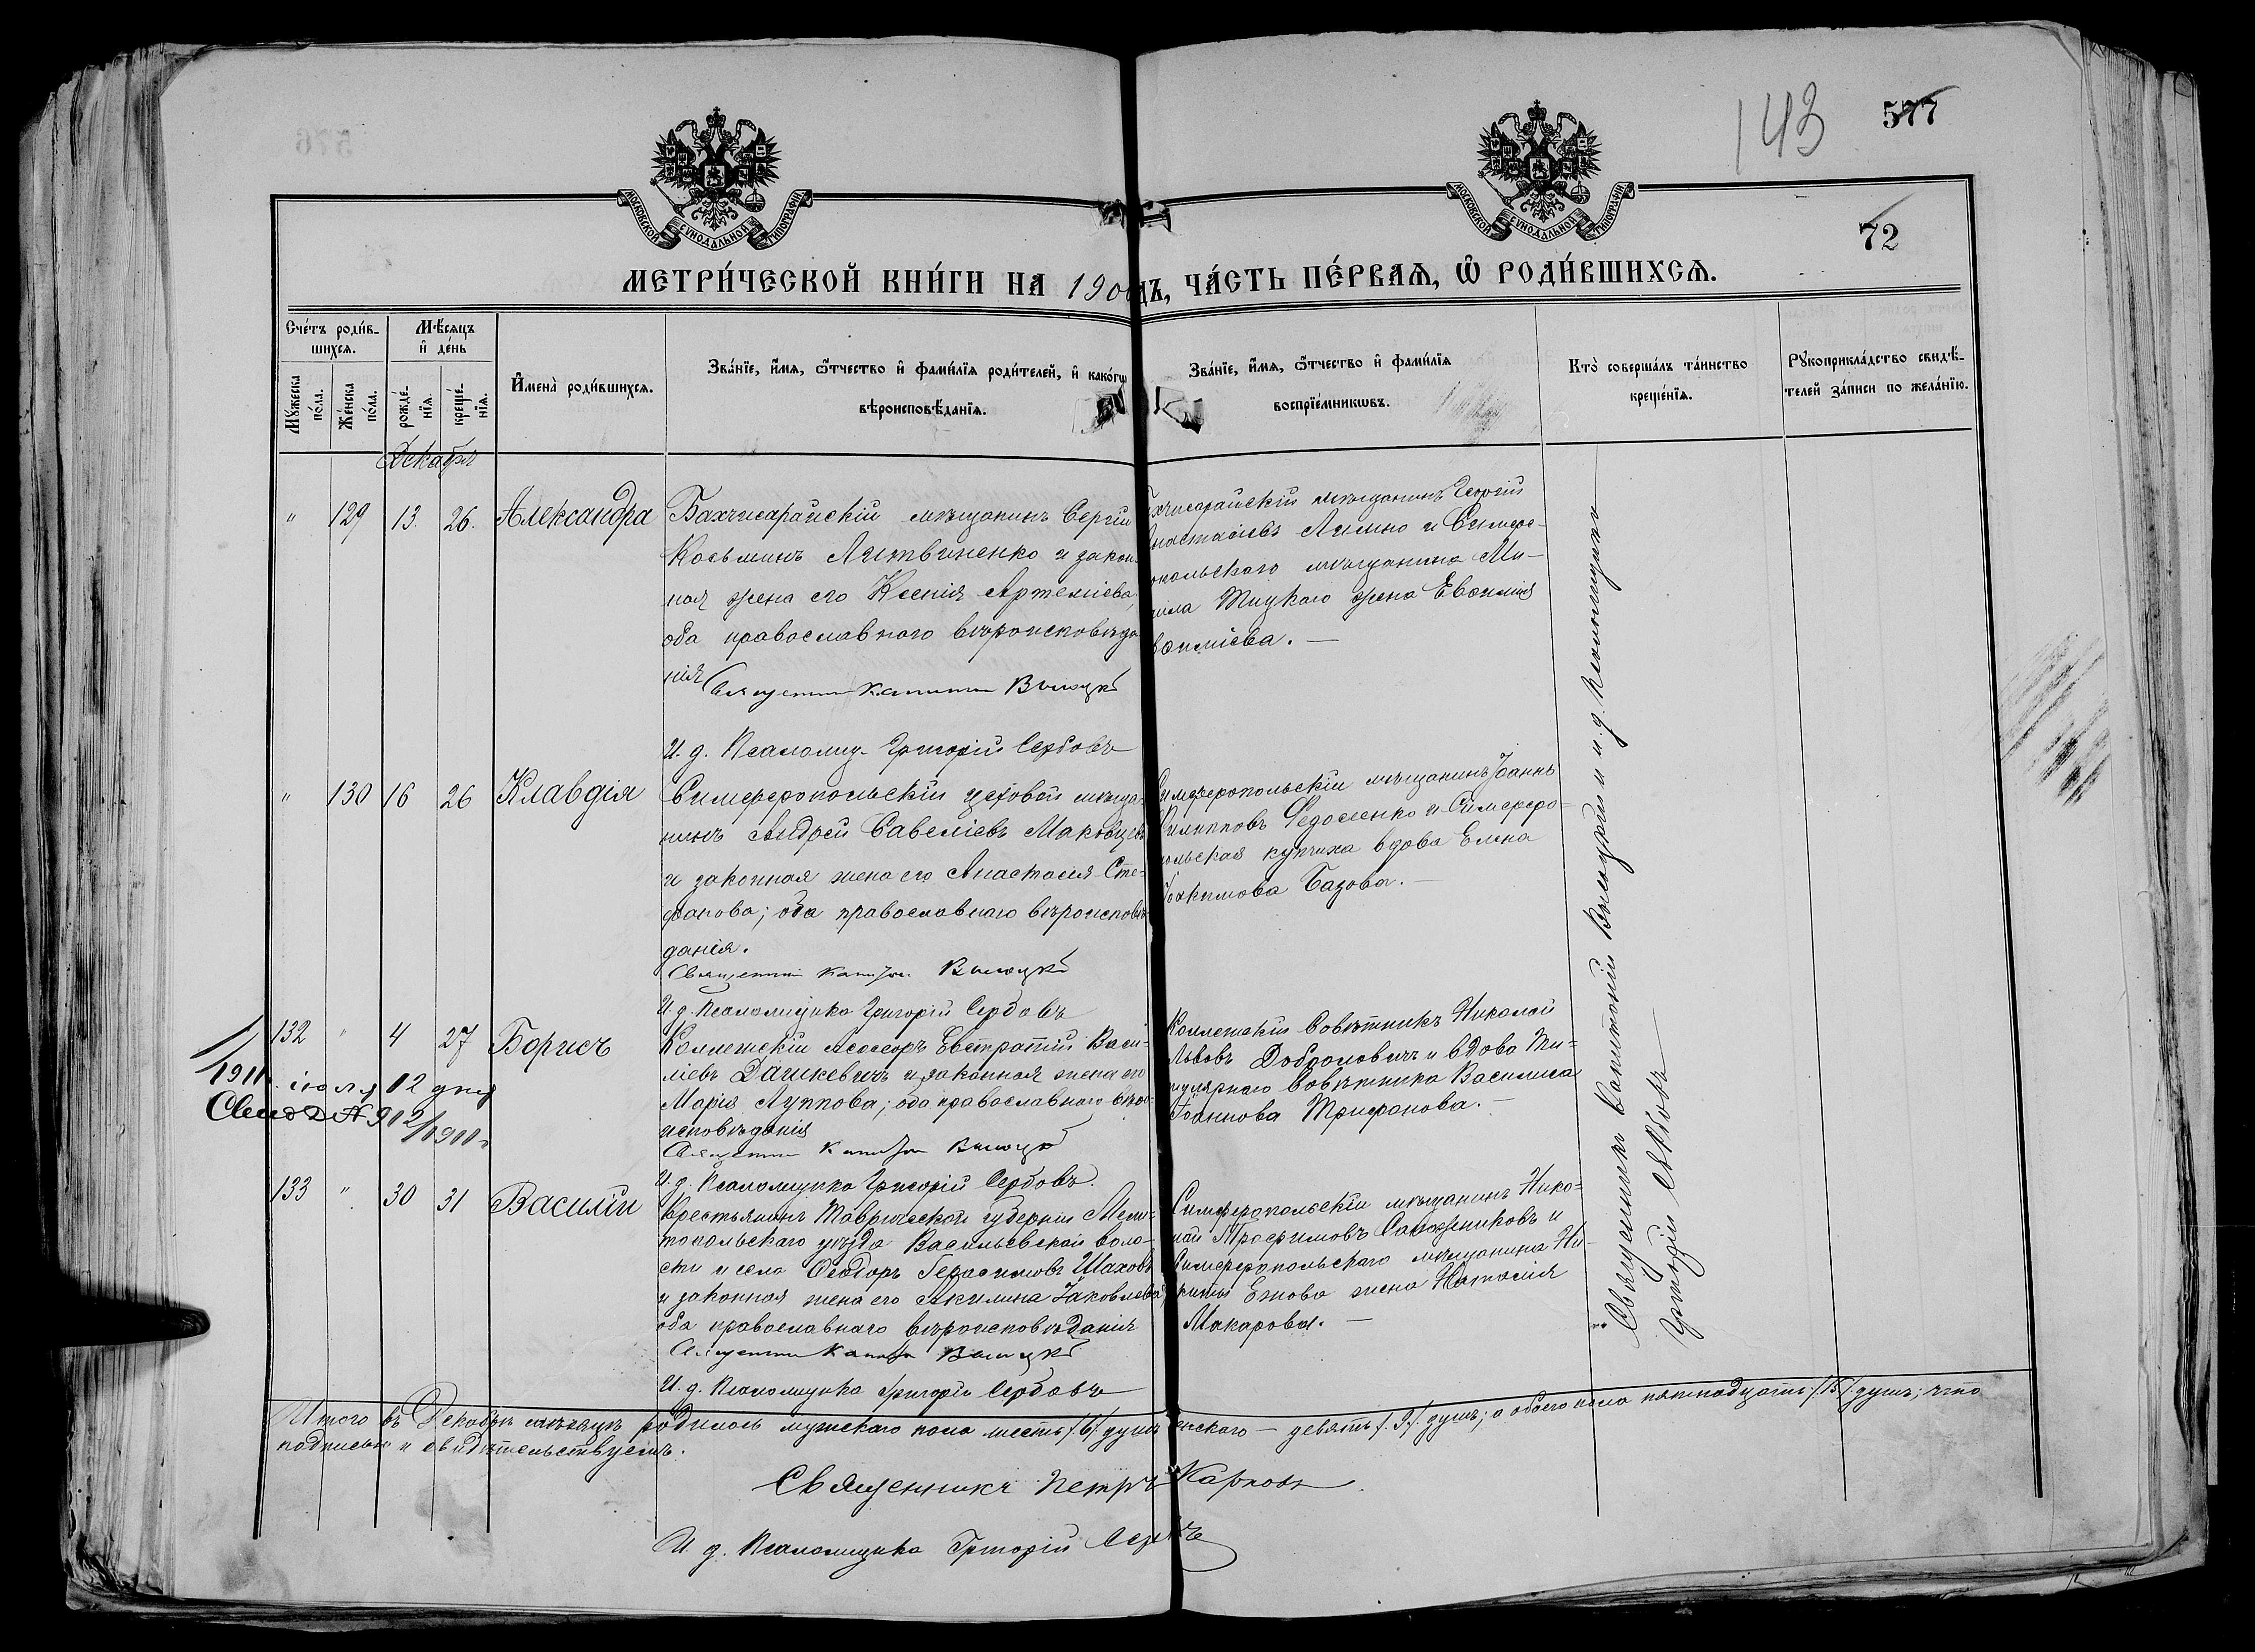 143
577
72
МОСКОВСКОЙ СѴНОДАЛЬНОЙ ТИПОГРАФІИ
МОСКОВСКОЙ СѴНОДАЛЬНОЙ ТИПОГРАФІИ
МЕТРИ́ЧЕСКОЙ КНИ́ГИ НА 190 ДЪ, ЧА́СТЬ ПЕ́РВАѦ, Ѿ РОДИ́ВШИХСѦ.
Сче́тъ роди́в-
шихся.
Мѣ́сяцъ
и де́нь
Мꙋ́жеска по́ла.
Же́нска по́ла.
рожде́нїя.
креще́нїя.
Имена̀ роди́вшихся.
Зва́нїе, и́мя, ѻ҆́тчество и҆ фами́лїя роди́телей, и҆ како́гѡ
вѣроисповѣ́данїя.
Зва́нїе, и́мя, ѻ҆́тчество и҆ фами́лїя
воспрїе́мникѡвъ.
Кто̀ соверша́лъ та́инство
креще́нїя.
Рꙋкоприкла́дство свидѣ́-
телей за́писи по жела́нїю.
Декабрь
" 129 13. 26. Александра
Бахчисарайскій мѣщанинъ Сергій
Косьминъ Литвиненко и закон-
ная жена его Ксенія Артеміева,
оба православнаго вѣроисповѣда
нія
Священникъ Капитонъ Высоцкій
И. д. Псаломщ. Григорій Сербовъ
хчисарайскій мѣщанинъ Георгій
настасіевъ Лимно и Симфе-
опольскаго мѣщанина Ми-
хаила Тицкаго жена Евѳимія
вѳиміева. —
" 130 16 26 Клавдія
Симферопольскій цеховой мѣща-
нинъ Андрей Савеліевъ Маковцевъ
и законная жена его Анастасія Сте-
фанова; оба православнаго вѣроисповѣ-
данія.
Священникъ Капитонъ Высоцкій
И. д. Псаломщика Григорій Сербовъ
Симферопольскій мѣщанинъ Іоаннъ
Филипповъ Федосенко и Симферо=
польская купчиха вдова Елена
Іоакимова Базова. —
132 " 4 27 Борисъ
1911 г. іюля 12 дня
Свид. № 902
Коллежскій Ассесоръ Евстратій Васи-
ліевъ Дашкевичъ и законная жена его
Марія Луппова; оба православнаго вѣро-
исповѣданія
Священникъ Капитонъ Высоцкій
И. д. Псаломщика Григорій Сербовъ.
Коллежскій Совѣтникъ Николай
Львовъ Доброловичъ и вдова Ти=
тулярнаго Совѣтника Василиса
Іоаннова Трифонова. —
133 " 30 31 Василій
Крестьянинъ Таврической губерніи Мели-
топольскаго уѣзда Васильевской воло-
сти и села Ѳеодоръ Герасимовъ Шаховъ
и законная жена его Акилина Іаковлева;
оба православнаго вѣроисповѣданія
Священникъ Капитонъ Высоцкій
И. д. Псаломщика Григорій Сербовъ
Симферопольскій мѣщанинъ Нико=
лай Трофимовъ Сапожниковъ и
Симферопольскаго мѣщанина Ни-
киты Ежова жена Наталія
Макарова. —
Священникъ Капитонъ Высоцкій и и. д. Псаломщика
Григорій Сербовъ
Итого въ Декабрѣ мѣсяцѣ родилось мужескаго пола шесть /6/ душъ женскаго — девять /9/ душъ; а обоего пола пятнадцать /15/ душъ; что
подписью и свидѣтельствуемъ.
Священникъ Петръ Карповъ
И д. Псаломщика Григорій Сербовъ